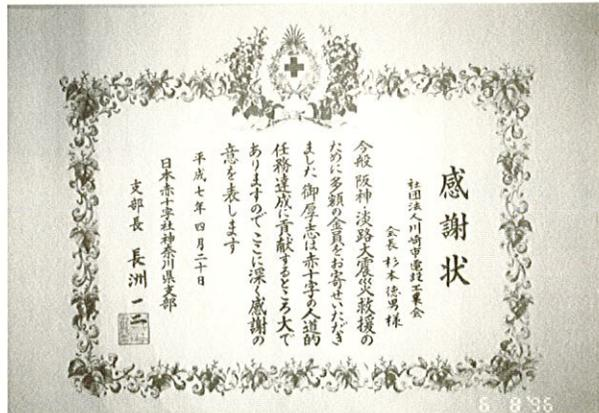 感謝状
社団法人川崎市電設工業会
会長 杉本徳男様
今般 阪神・淡路大震災救援の
ために多額の金員をお寄せいただき
ました 御厚志は赤十字の人道的
任務達成に貢献するところ大で
ありますので ここに深く感謝の
意を表します
平成七年四月二十日
日本赤十字社神奈川県支部
支部長 長洲一二